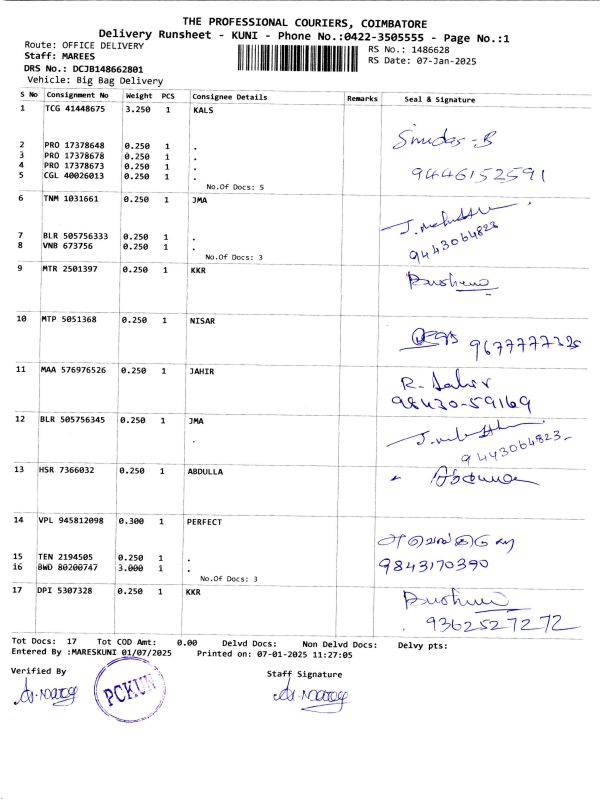 THE PROFESSIONAL COURIERS, COIMBATORE
Delivery Runsheet - KUNI - Phone No.:0422-3505555 - Page No.:1
Route: OFFICE DELIVERY
RS No.: 1486628
Staff: MAREES
RS Date: 07-Jan-2025
DRS No.: DCJB148662801
Vehicle: Big Bag Delivery
S No Consignment No Weight PCS Consignee Details Remarks Seal & Signature
1 TCG 41448675 3.250 1 KALS
2 PRO 17378648 0.250 1 .
3 PRO 17378678 0.250 1 .
4 PRO 17378673 0.250 1 .
5 CGL 40026013 0.250 1 . 9446152591
No.Of Docs: 5
6 TNM 1031661 0.250 1 JMA
7 BLR 505756333 0.250 1 .
8 VNB 673756 0.250 1 . 9443064823
No.Of Docs: 3
9 MTR 2501397 0.250 1 KKR
10 MTP 5051368 0.250 1 NISAR
11 MAA 576976526 0.250 1 JAHIR
98430-59169
12 BLR 505756345 0.250 1 JMA
. 9443064823
13 HSR 7366032 0.250 1 ABDULLA
14 VPL 945812098 0.300 1 PERFECT
15 TEN 2194505 0.250 1 .
16 BWD 80200747 3.000 1 . 9843170390
No.Of Docs: 3
17 DPI 5307328 0.250 1 KKR
9362527272
Tot Docs: 17 Tot COD Amt: 0.00 Delvd Docs: Non Delvd Docs: Delvy pts:
Entered By :MARESKUNI 01/07/2025 Printed on: 07-01-2025 11:27:05
Verified By
Staff Signature
PCKUN